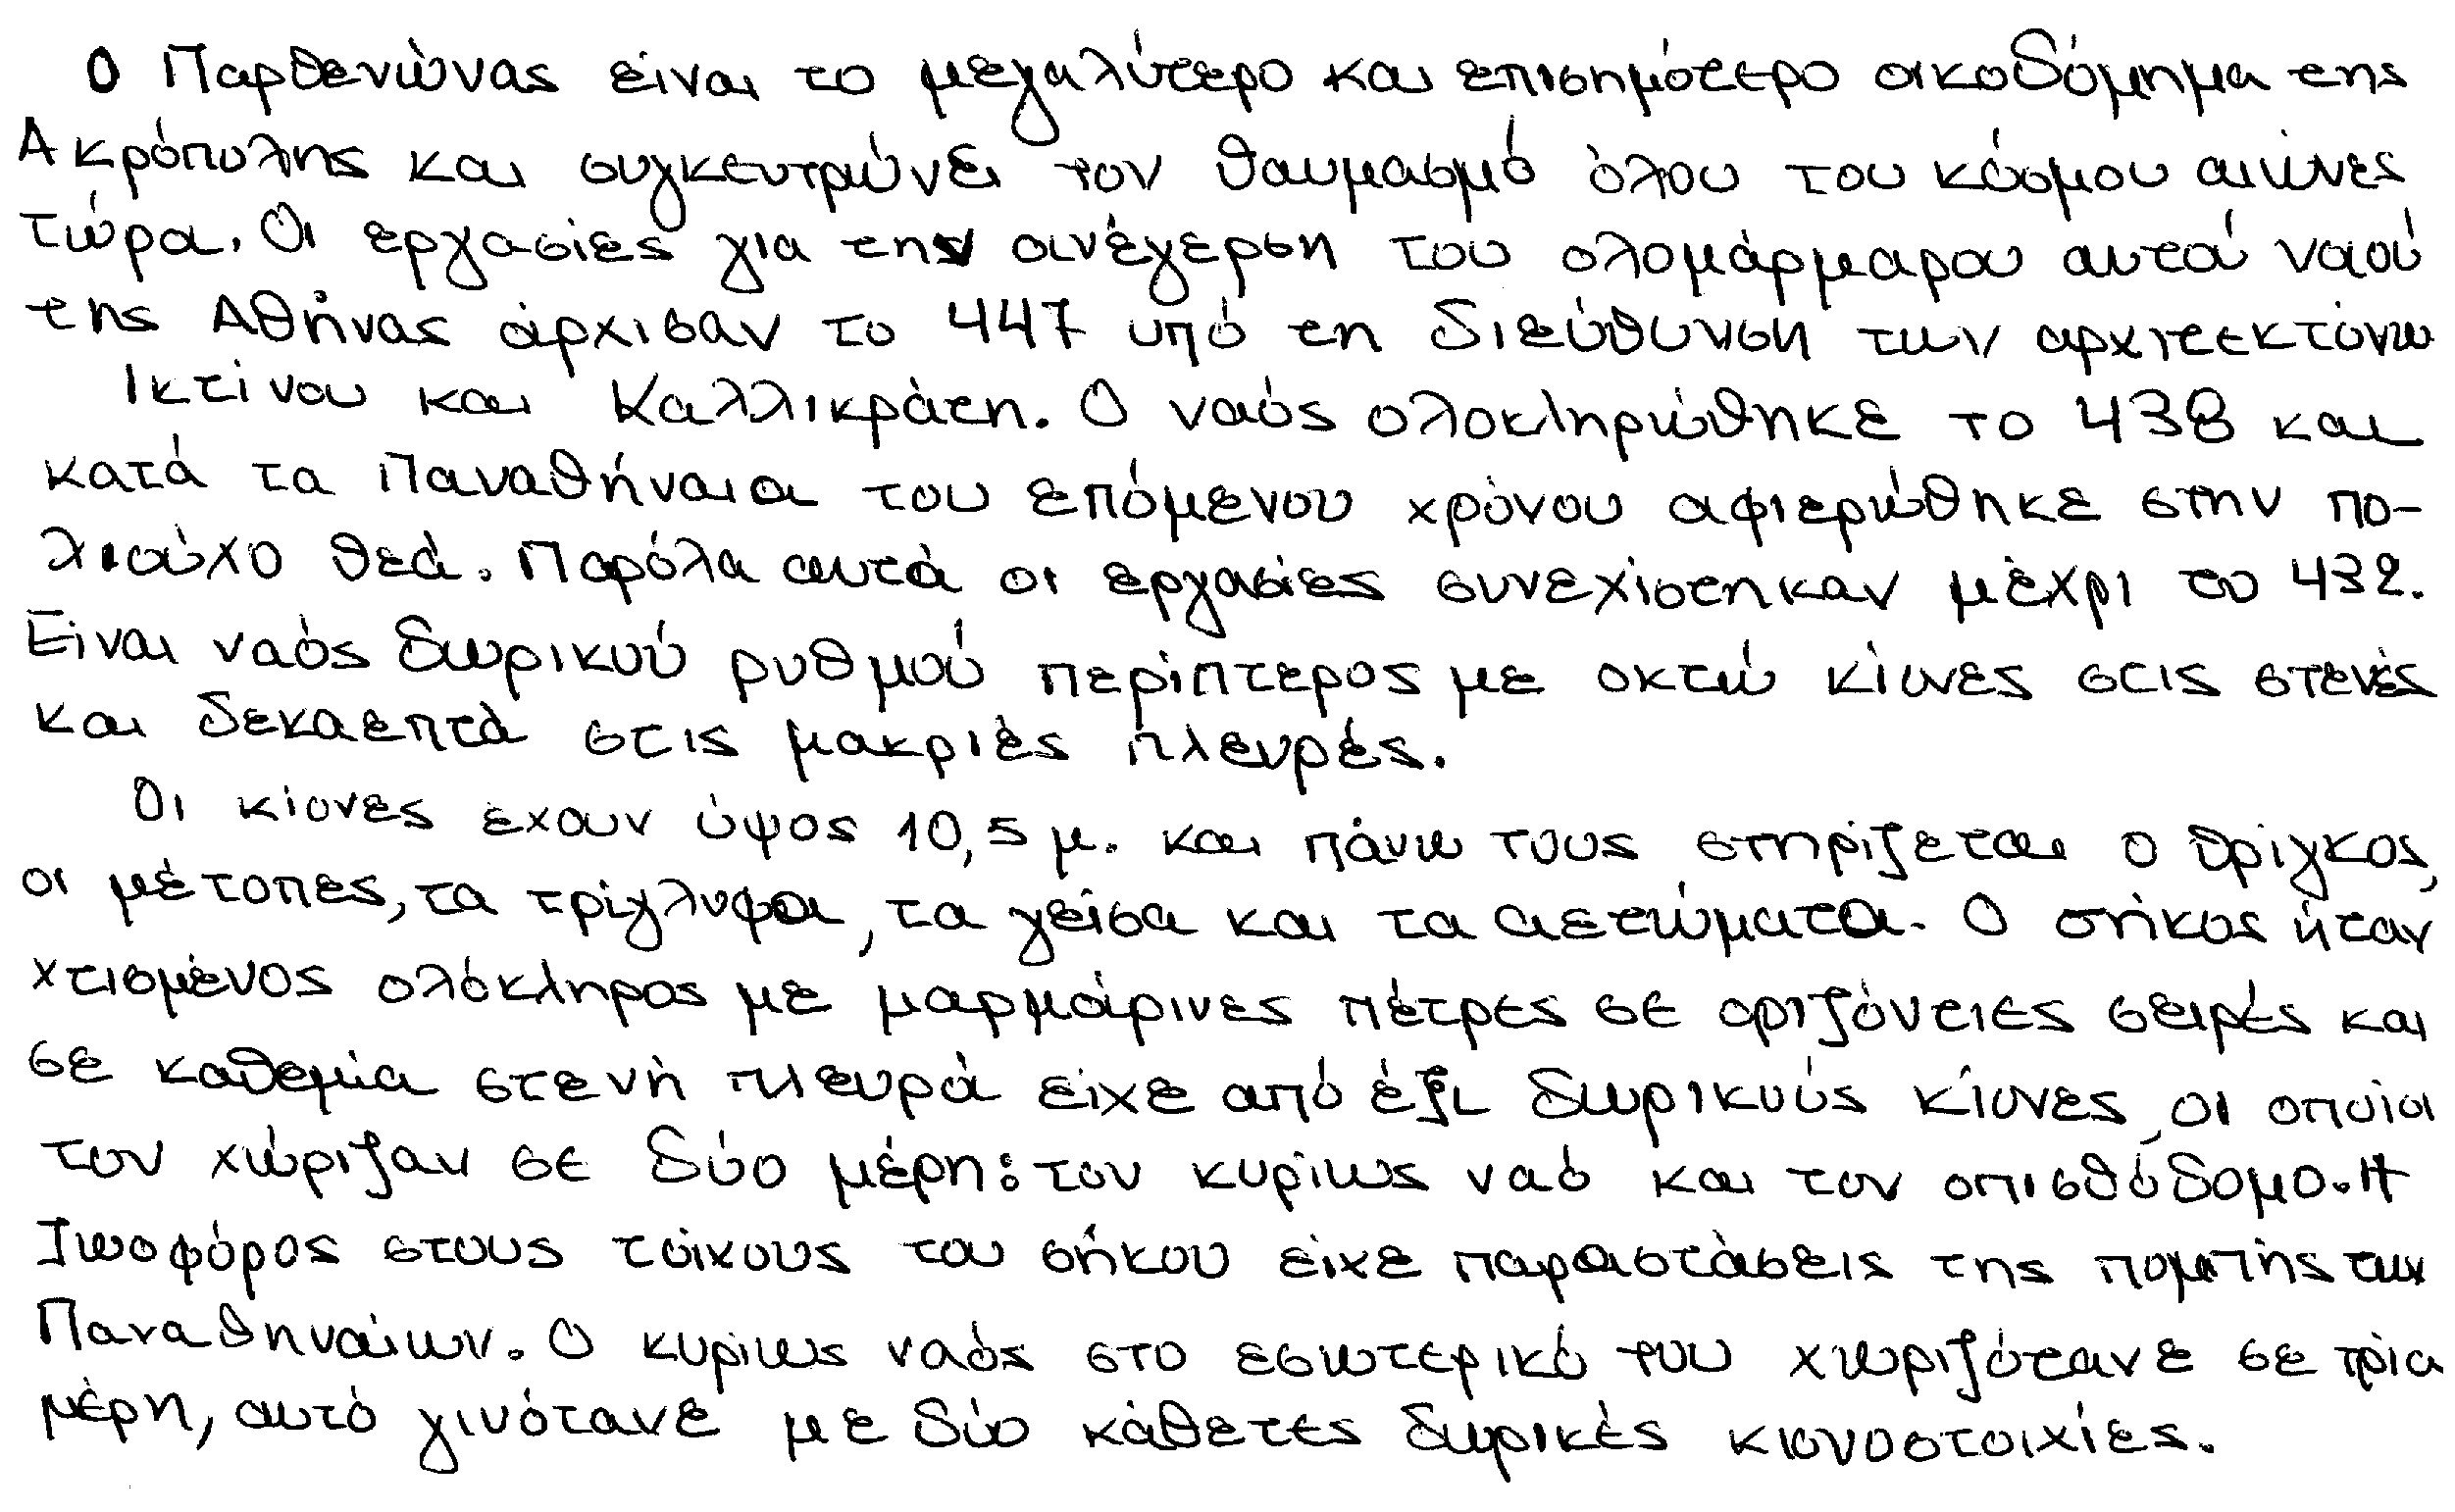 Ο Παρθενώνας είναι το μεγαλύτερο και επισημότερο οικοδόμημα της
Ακρόπολης και συγκεντρώνει τον θαυμασμό όλου του κόσμου αιώνες
τώρα. Οι εργασίες για την ανέγερση του ολομάρμαρου αυτού ναού
της Αθήνας άρχισαν το 447 υπό τη διεύθυνση των αρχιτεκτόνω
Ικτίνου και Καλλικράτη. Ο ναός ολοκληρώθηκε το 438 και
κατά τα Παναθήναια του επόμενου χρόνου αφιερώθηκε στην πο-
λιούχο θεά. Παρόλα αυτά οι εργασίες συνεχίστηκαν μέχρι το 432.
Είναι ναός δωρικού ρυθμού περίπτερος με οκτώ κίονες στις στενές
και δεκαεπτά στις μακριές πλευρές.
Οι κίονες έχουν ύψος 10,5 μ. και πάνω τους στηρίζεται ο θρίγκος,
οι μέτοπες, τα τρίγλυφα, τα γείσα και τα αετώματα. Ο σηκός ήταν
χτισμένος ολόκληρος με μαρμάρινες πέτρες σε οριζόντιες σειρές και
σε καθεμία στενή πλευρά είχε από έξι δωρικούς κίονες, οι οποίοι
τον χώριζαν σε δύο μέρη: τον κυρίως ναό και τον οπισθόδομο. Η
Ζωοφόρος στους τοίχους του σήκου είχε παραστάσεις της πομπής των
Παναθηναίων. Ο κυρίως ναός στο εσωτερικό του χωριζότανε σε τρία
μέρη, αυτό γινότανε με δύο κάθετες δωρικές κιονοστοιχίες.